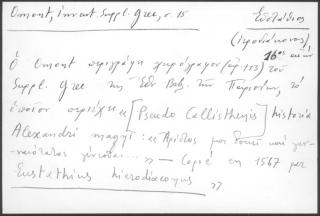 Omont, invent. Suppl. Grec, σ. 15
Εὐστάθιος
(ἱεροδιάκονος)
16ος αιών
Ὁ Omont περιγράφει χειρόγραφον (ἀρ. 113) τοῦ
Suppl. Grec τῆς Ἐθν. Βιβ. τῶν Παρισίων, τό
ὁποῖον περιέχει « [Pseudo Callisthenis] historia
Alexandri magni: « Ἄριστος μοι δοκεῖ καί γεν-
ναιότατος γενέσθαι... » — Copié en 1567 par
Eustathius hierodiaconus ».